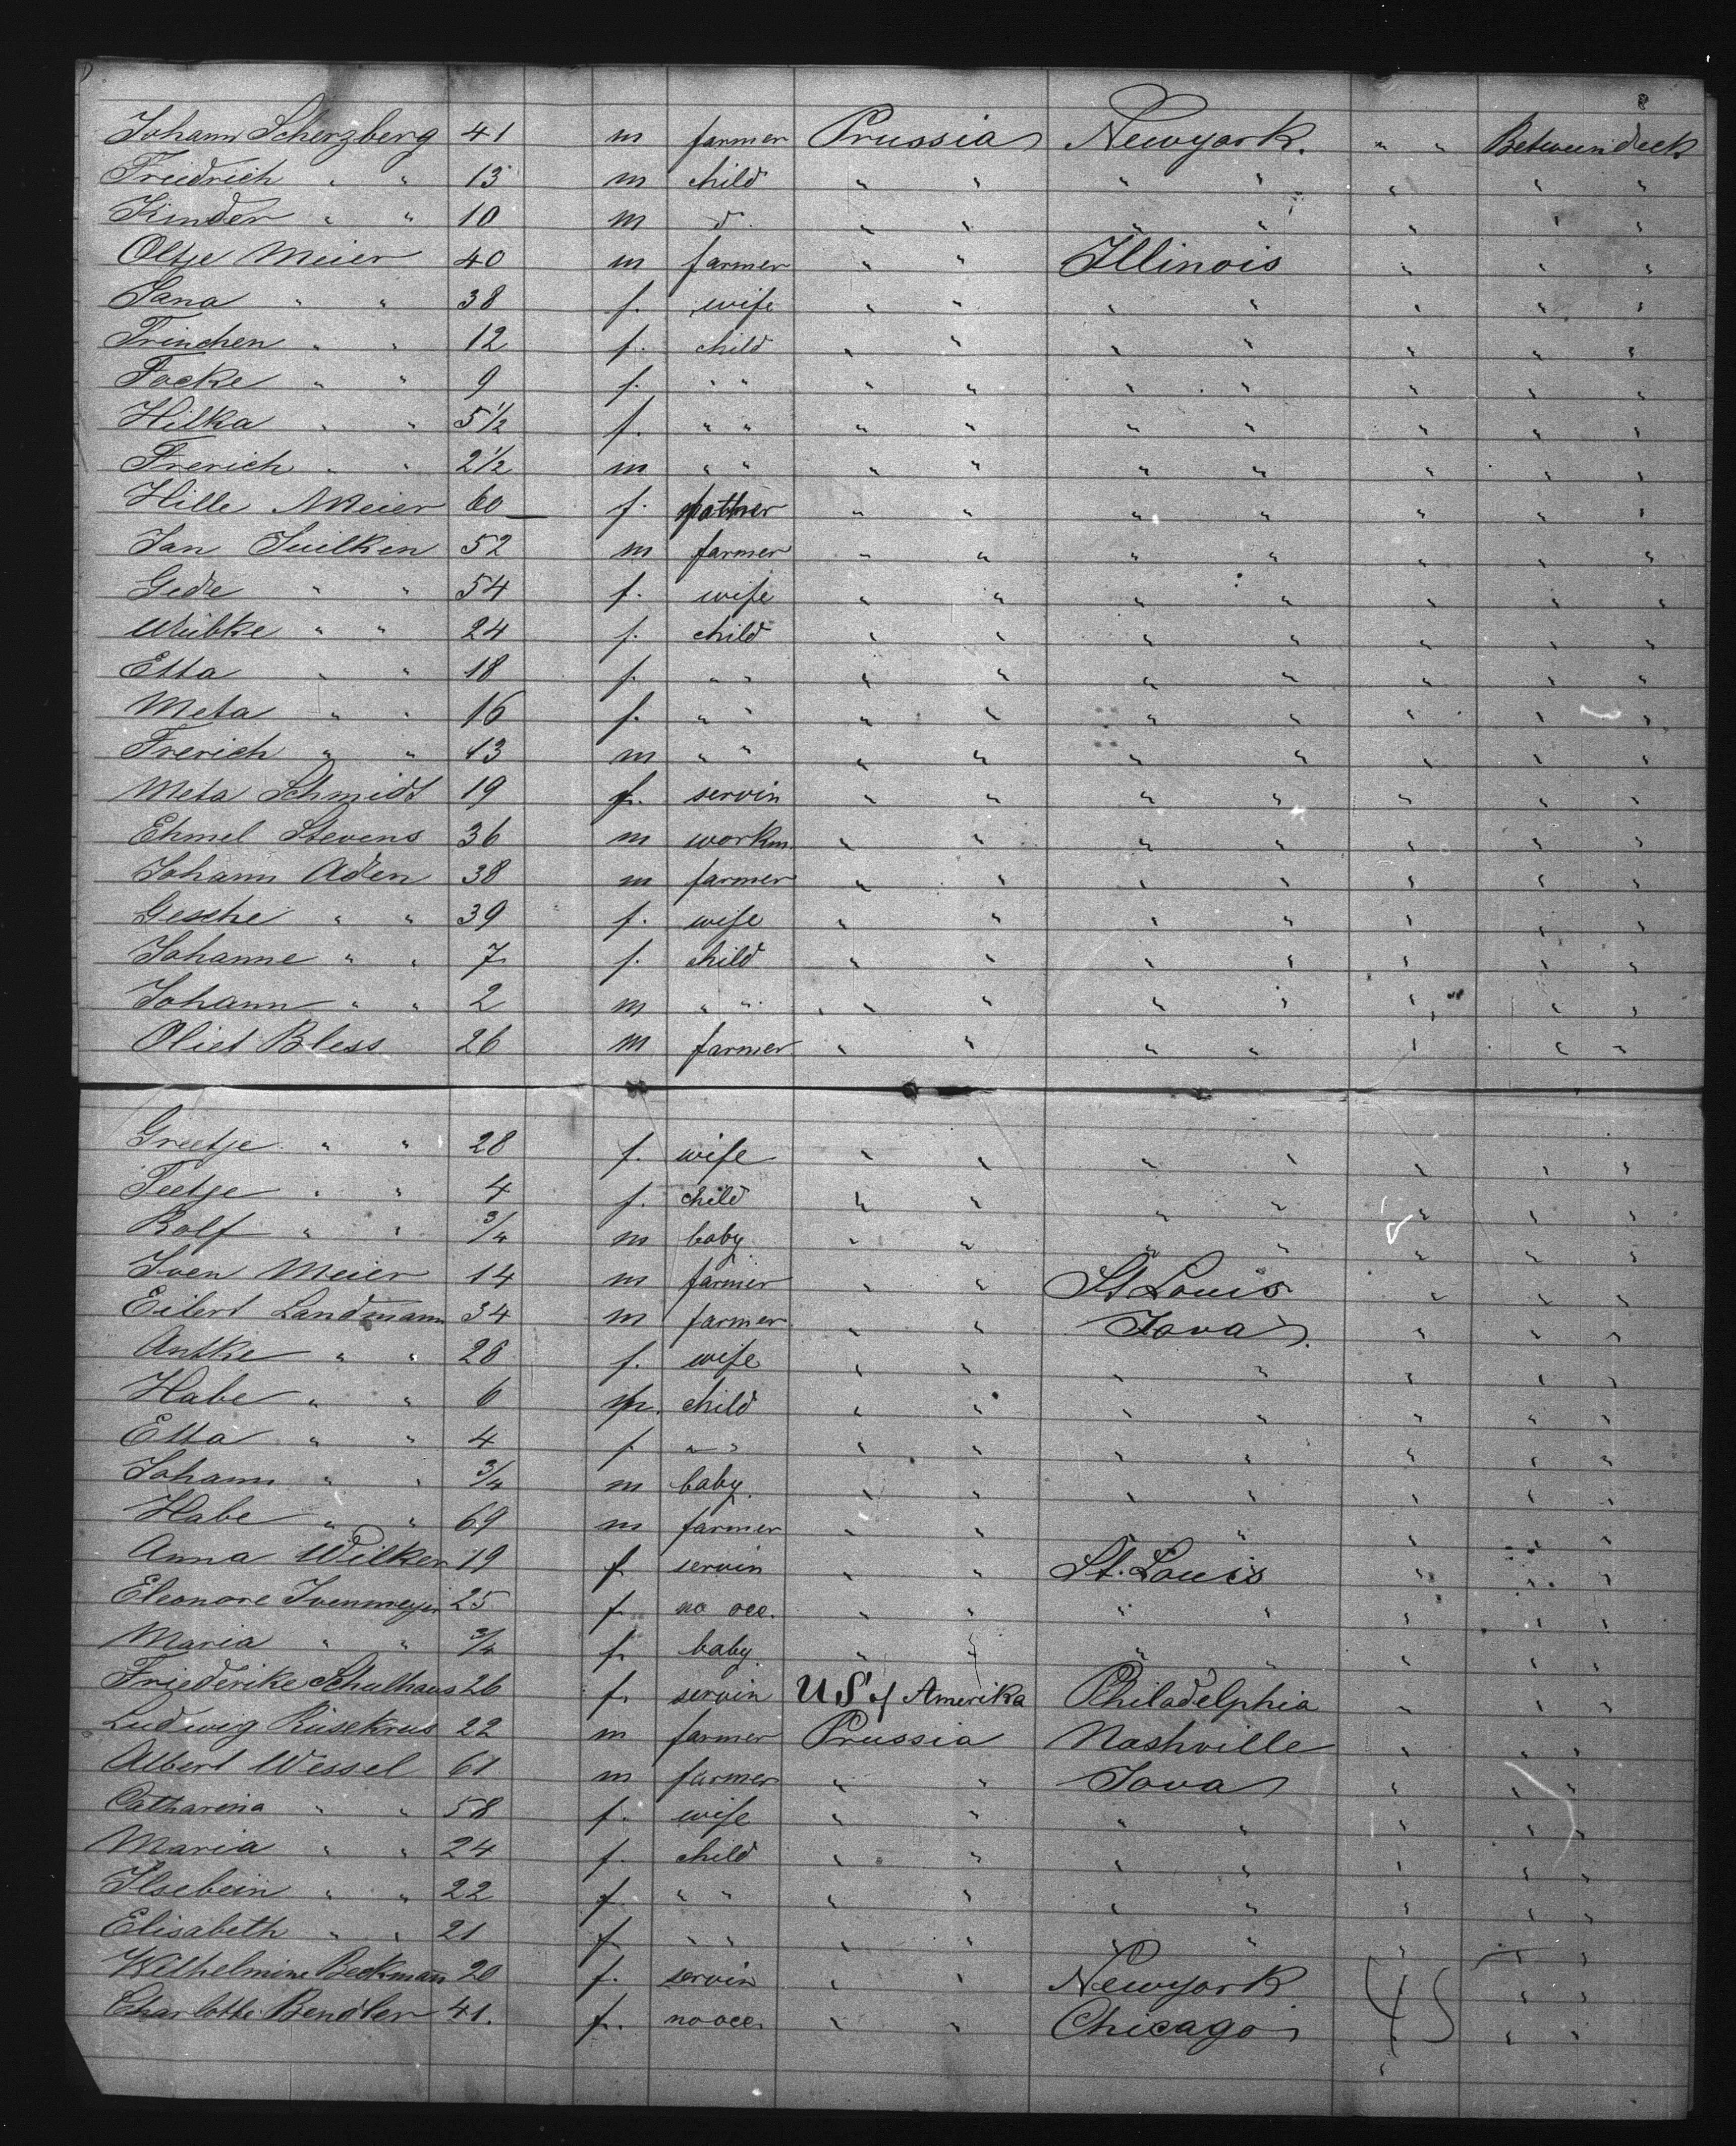 Johann Scherzberg 41 m farmer Prussia Newyork. " " Betweendeck
Friedrich " " 13 m child " " " " " " "
Kinder " " 10 m d. " " " " " " "
Oltje Meier 40 m farmer " " Illinois " " "
Jana " " 38 f. wife " " " " " " "
Trinchen " " 12 f. child " " " " " " "
Focke " " 9 f. " " " " " " " " "
Hilka " " 5½ f. " " " " " " " " "
Frerich " " 2½ m " " " " " " " " "
Hille Meier 60 f. mother " " " " " " "
Jan Suilken 52 m farmer " " " " " " "
Gedre " " 54 f. wife " " " " " " "
Wübke " " 24 f. child " " " " " " "
Etta " " 18 f. " " " " " " " " "
Meta " " 16 f. " " " " " " " " "
Frerich " " 13 m " " " " " " " " "
Meta Schmidt 19 f. servin " " " " " " "
Ehmel Stevens 36 m workm. " " " " " " "
Johann Aden 38 m farmer " " " " " " "
Gesche " " 39 f. wife " " " " " " "
Johanne " " 7 f. child " " " " " " "
Johann " " 2 m " " " " " " " " "
Oliet Bless 26 m farmer " " " " " " "
Greetje " " 28 f. wife " " " " " " "
Teetje " " 4 f. child " " " " " " "
Rolf " " 3/4 m baby " " " " " " "
Iven Meier 14 m farmer " " St Louis " " "
Eilert Landmann 34 m farmer " " Iova " " "
Antke " " 28 f. wife " " " " " " "
Habe " " 6 m. child " " " " " " "
Etta " " 4 f " " " " " " " " "
Johann " " 3/4 m baby. " " " " " " "
Habe " " 69 m farmer " " " " " "
Anna Wilken 19 f servin " " St. Louis " " "
Eleonore Ivenmeyer 25 f no occ. " " " " " " "
Maria " " 3/4 f. baby. " " " " " " "
Friederike Schulhaus 26 f. servin US of Amerika Philadelphia " " "
Ludwig Rüsekrus 22 m farmer Prussia Nashville " " "
Albert Wessel 61 m farmer " " Iova " " "
Catharina " " 58 f. wife " " " " " " "
Maria " " 24 f. child " " " " " " "
Ilsebein " " 22 f. " " " " " " " " "
Elisabeth " " 21 f " " " " " " " " "
Wilhelmine Beckmann 20 f. servin " " Newyork " "
Charlotte Bendler 41. f. no occ. " " Chicago 45 " " "